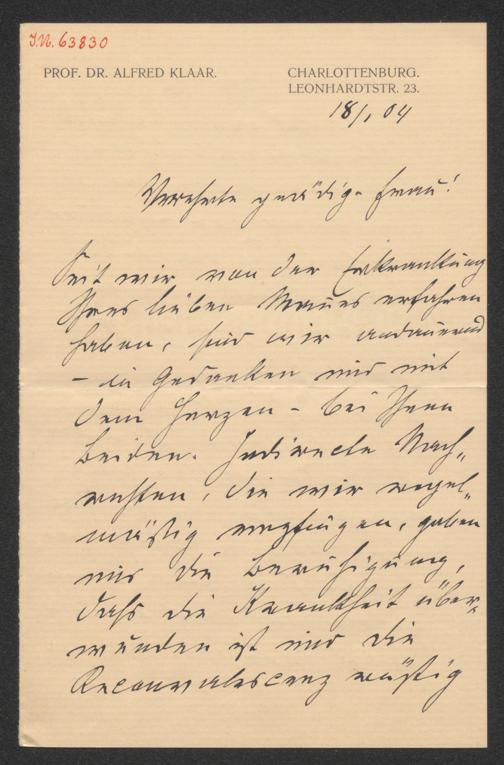 I.N. 63830
PROF. DR. ALFRED KLAAR.
CHARLOTTENBURG.
LEONHARDTSTR. 23.
18/1 04
Verehrte gnädige Frau!
Seit wir von der Erkrankung
Ihres lieben Mannes erfahren
haben, sind wir andauernd
– in Gedanken und mit
dem Herzen – bei Ihnen
Beiden. Indirecte Nach-
richten, die wir regel-
mäßig empfingen, geben
uns die Beruhigung,
daß die Krankheit über-
wunden ist und die
Reconvalescenz rüstig